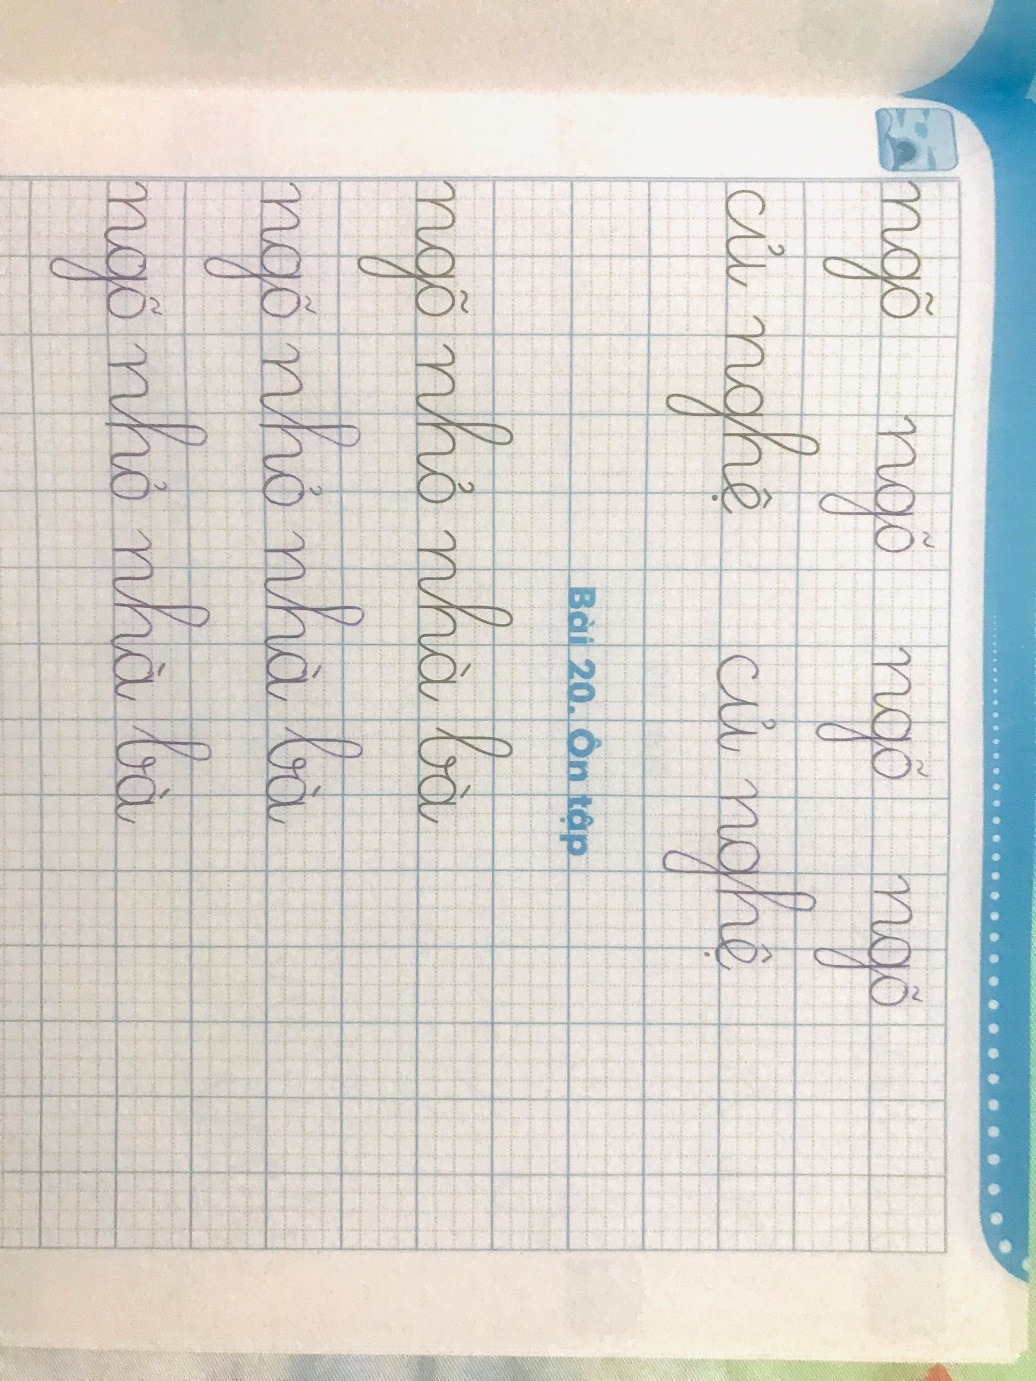 ngõ ngõ ngõ ngõ
củ nghệ củ nghệ
Bài 20. Ôn tập
ngõ nhỏ nhà bà
ngõ nhỏ nhà bà
ngõ nhỏ nhà bà